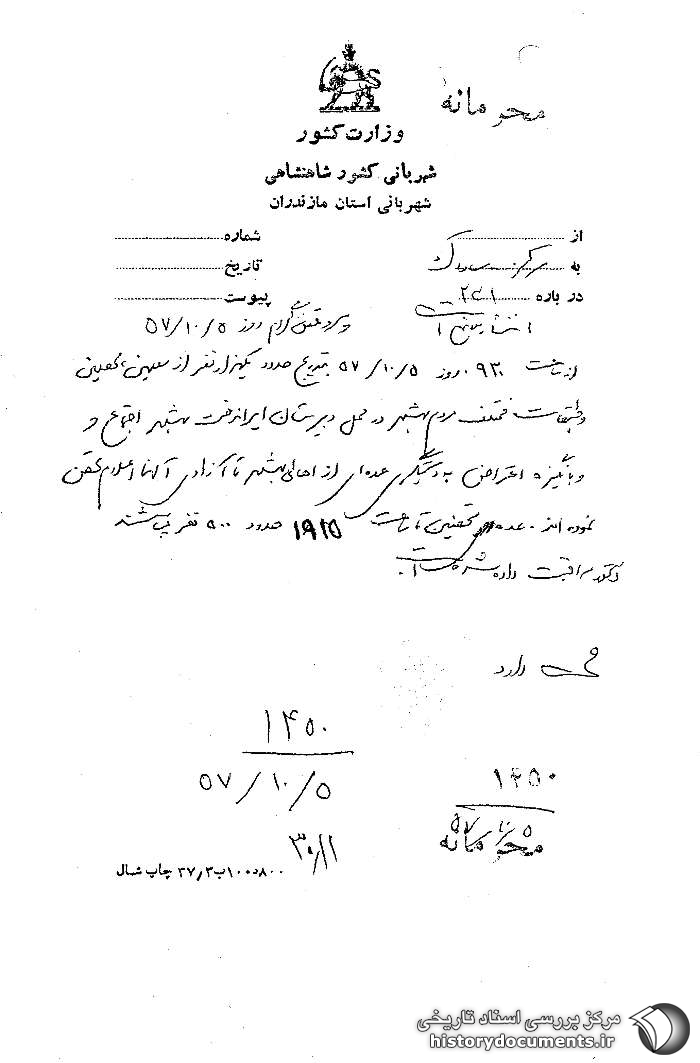 محرمانه
وزارت کشور
شهربانی کشور شاهنشاهی
شهربانی استان مازندران
از
شماره
به مرکز ساواک
تاریخ
در باره
پیوست
پیرو تلفنگرام روز ۵۷/۱۰/۵
از ساعت ۰۹۳۰ روز ۵۷/۱۰/۵ بتدریج حدود یکهزار نفر از معلمین، محصلین
و طبقات مختلف مردم بهشهر در محل دبیرستان ایراندخت بهشهر اجتماع و
و بانگیزه اعتراض به دستگیری عده‌ای از اهالی بهشهر تا آزادی آنها اعلام تحصن
نموده‌اند. عده متحصنین تا ساعت ۱۹۲۵ حدود ۵۰۰ نفر میباشند
دستور مراقبت داده شده است.
۱۴۵۰
۵۷/۱۰/۵
۱۴۵۰
۵۷/۱۰/۵
محرمانه
چاپ شمال
مرکز بررسی اسناد تاریخی
historydocuments.ir